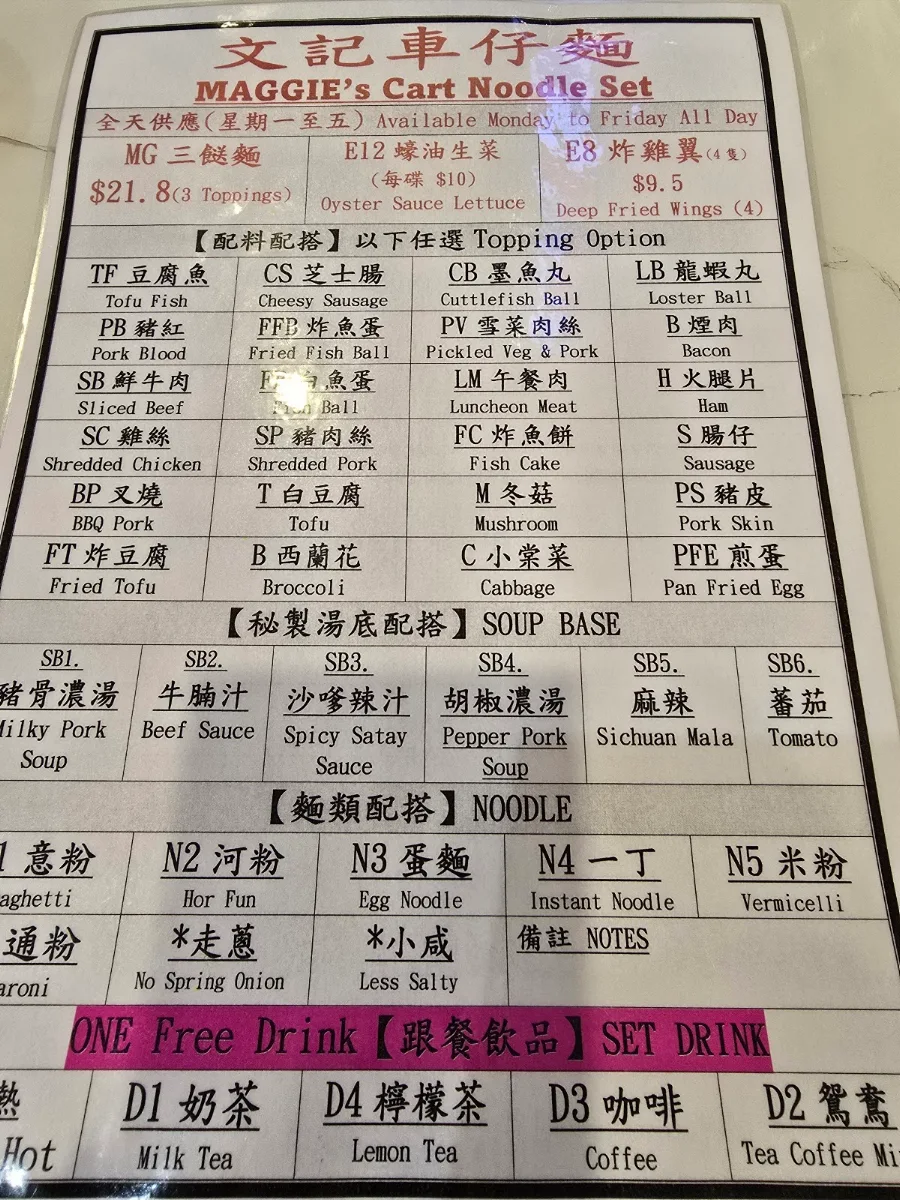 文記車仔麵
MAGGIE's Cart Noodle Set
全天供應(星期一至五) Available Monday to Friday All Day
MG 三餸麵
$21.8(3 Toppings)
E12 蠔油生菜
(每碟 $10)
Oyster Sauce Lettuce
E8 炸雞翼(4隻)
$9.5
Deep Fried Wings (4)
【配料配搭】以下任選 Topping Option
TF 豆腐魚
Tofu Fish
CS 芝士腸
Cheesy Sausage
CB 墨魚丸
Cuttlefish Ball
LB 龍蝦丸
Loster Ball
PB 豬紅
Pork Blood
FFB 炸魚蛋
Fried Fish Ball
PV 雪菜肉絲
Pickled Veg & Pork
B 煙肉
Bacon
SB 鮮牛肉
Sliced Beef
白魚蛋
Ball
LM 午餐肉
Luncheon Meat
H 火腿片
Ham
SC 雞絲
Shredded Chicken
SP 豬肉絲
Shredded Pork
FC 炸魚餅
Fish Cake
S 腸仔
Sausage
BP 叉燒
BBQ Pork
T 白豆腐
Tofu
M 冬菇
Mushroom
PS 豬皮
Pork Skin
FT 炸豆腐
Fried Tofu
B 西蘭花
Broccoli
C 小棠菜
Cabbage
PFE 煎蛋
Pan Fried Egg
【秘製湯底配搭】SOUP BASE
SB1.
豬骨濃湯
Milky Pork
Soup
SB2.
牛腩汁
Beef Sauce
SB3.
沙嗲辣汁
Spicy Satay
Sauce
SB4.
胡椒濃湯
Pepper Pork
Soup
SB5.
麻辣
Sichuan Mala
SB6.
蕃茄
Tomato
【麵類配搭】NOODLE
1 意粉
aghetti
N2 河粉
Hor Fun
N3 蛋麵
Egg Noodle
N4 一丁
Instant Noodle
N5 米粉
Vermicelli
通粉
aroni
*走蔥
No Spring Onion
*小咸
Less Salty
備註 NOTES
ONE Free Drink【跟餐飲品】SET DRINK
熱
Hot
D1 奶茶
Milk Tea
D4 檸檬茶
Lemon Tea
D3 咖啡
Coffee
D2 鴛鴦
Tea Coffee Mi